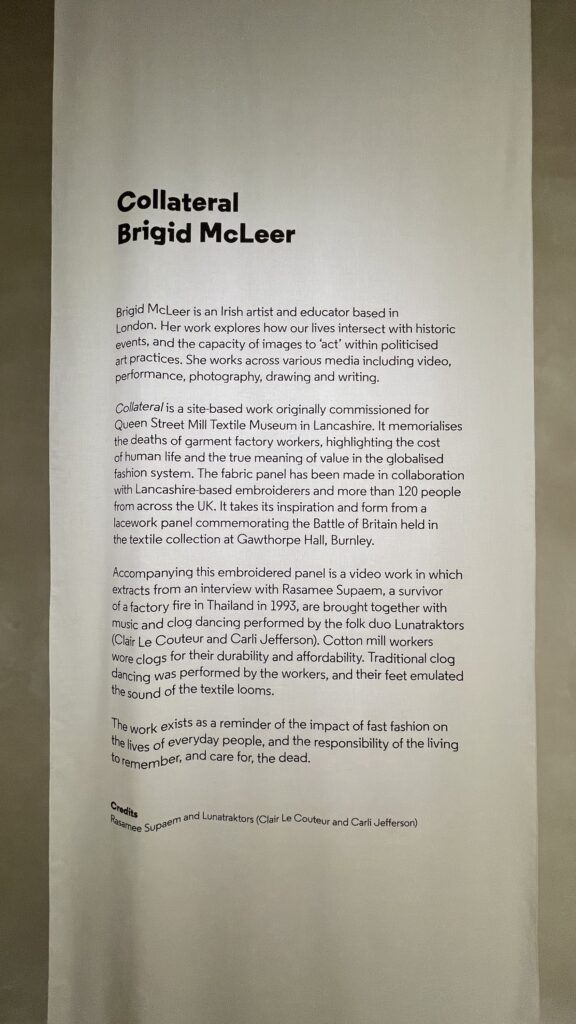 Collateral
Brigid McLeer
Brigid McLeer is an Irish artist and educator based in
London. Her work explores how our lives intersect with historic
events, and the capacity of images to ‘act’ within politicised
art practices. She works across various media including video,
performance, photography, drawing and writing.
Collateral is a site-based work originally commissioned for
Queen Street Mill Textile Museum in Lancashire. It memorialises
the deaths of garment factory workers, highlighting the cost
of human life and the true meaning of value in the globalised
fashion system. The fabric panel has been made in collaboration
with Lancashire-based embroiderers and more than 120 people
from across the UK. It takes its inspiration and form from a
lacework panel commemorating the Battle of Britain held in
the textile collection at Gawthorpe Hall, Burnley.
Accompanying this embroidered panel is a video work in which
extracts from an interview with Rasamee Supaem, a survivor
of a factory fire in Thailand in 1993, are brought together with
music and clog dancing performed by the folk duo Lunatraktors
(Clair Le Couteur and Carli Jefferson). Cotton mill workers
wore clogs for their durability and affordability. Traditional clog
dancing was performed by the workers, and their feet emulated
the sound of the textile looms.
The work exists as a reminder of the impact of fast fashion on
the lives of everyday people, and the responsibility of the living
to remember, and care for, the dead.
Credits
Rasamee Supaem and Lunatraktors (Clair Le Couteur and Carli Jefferson)